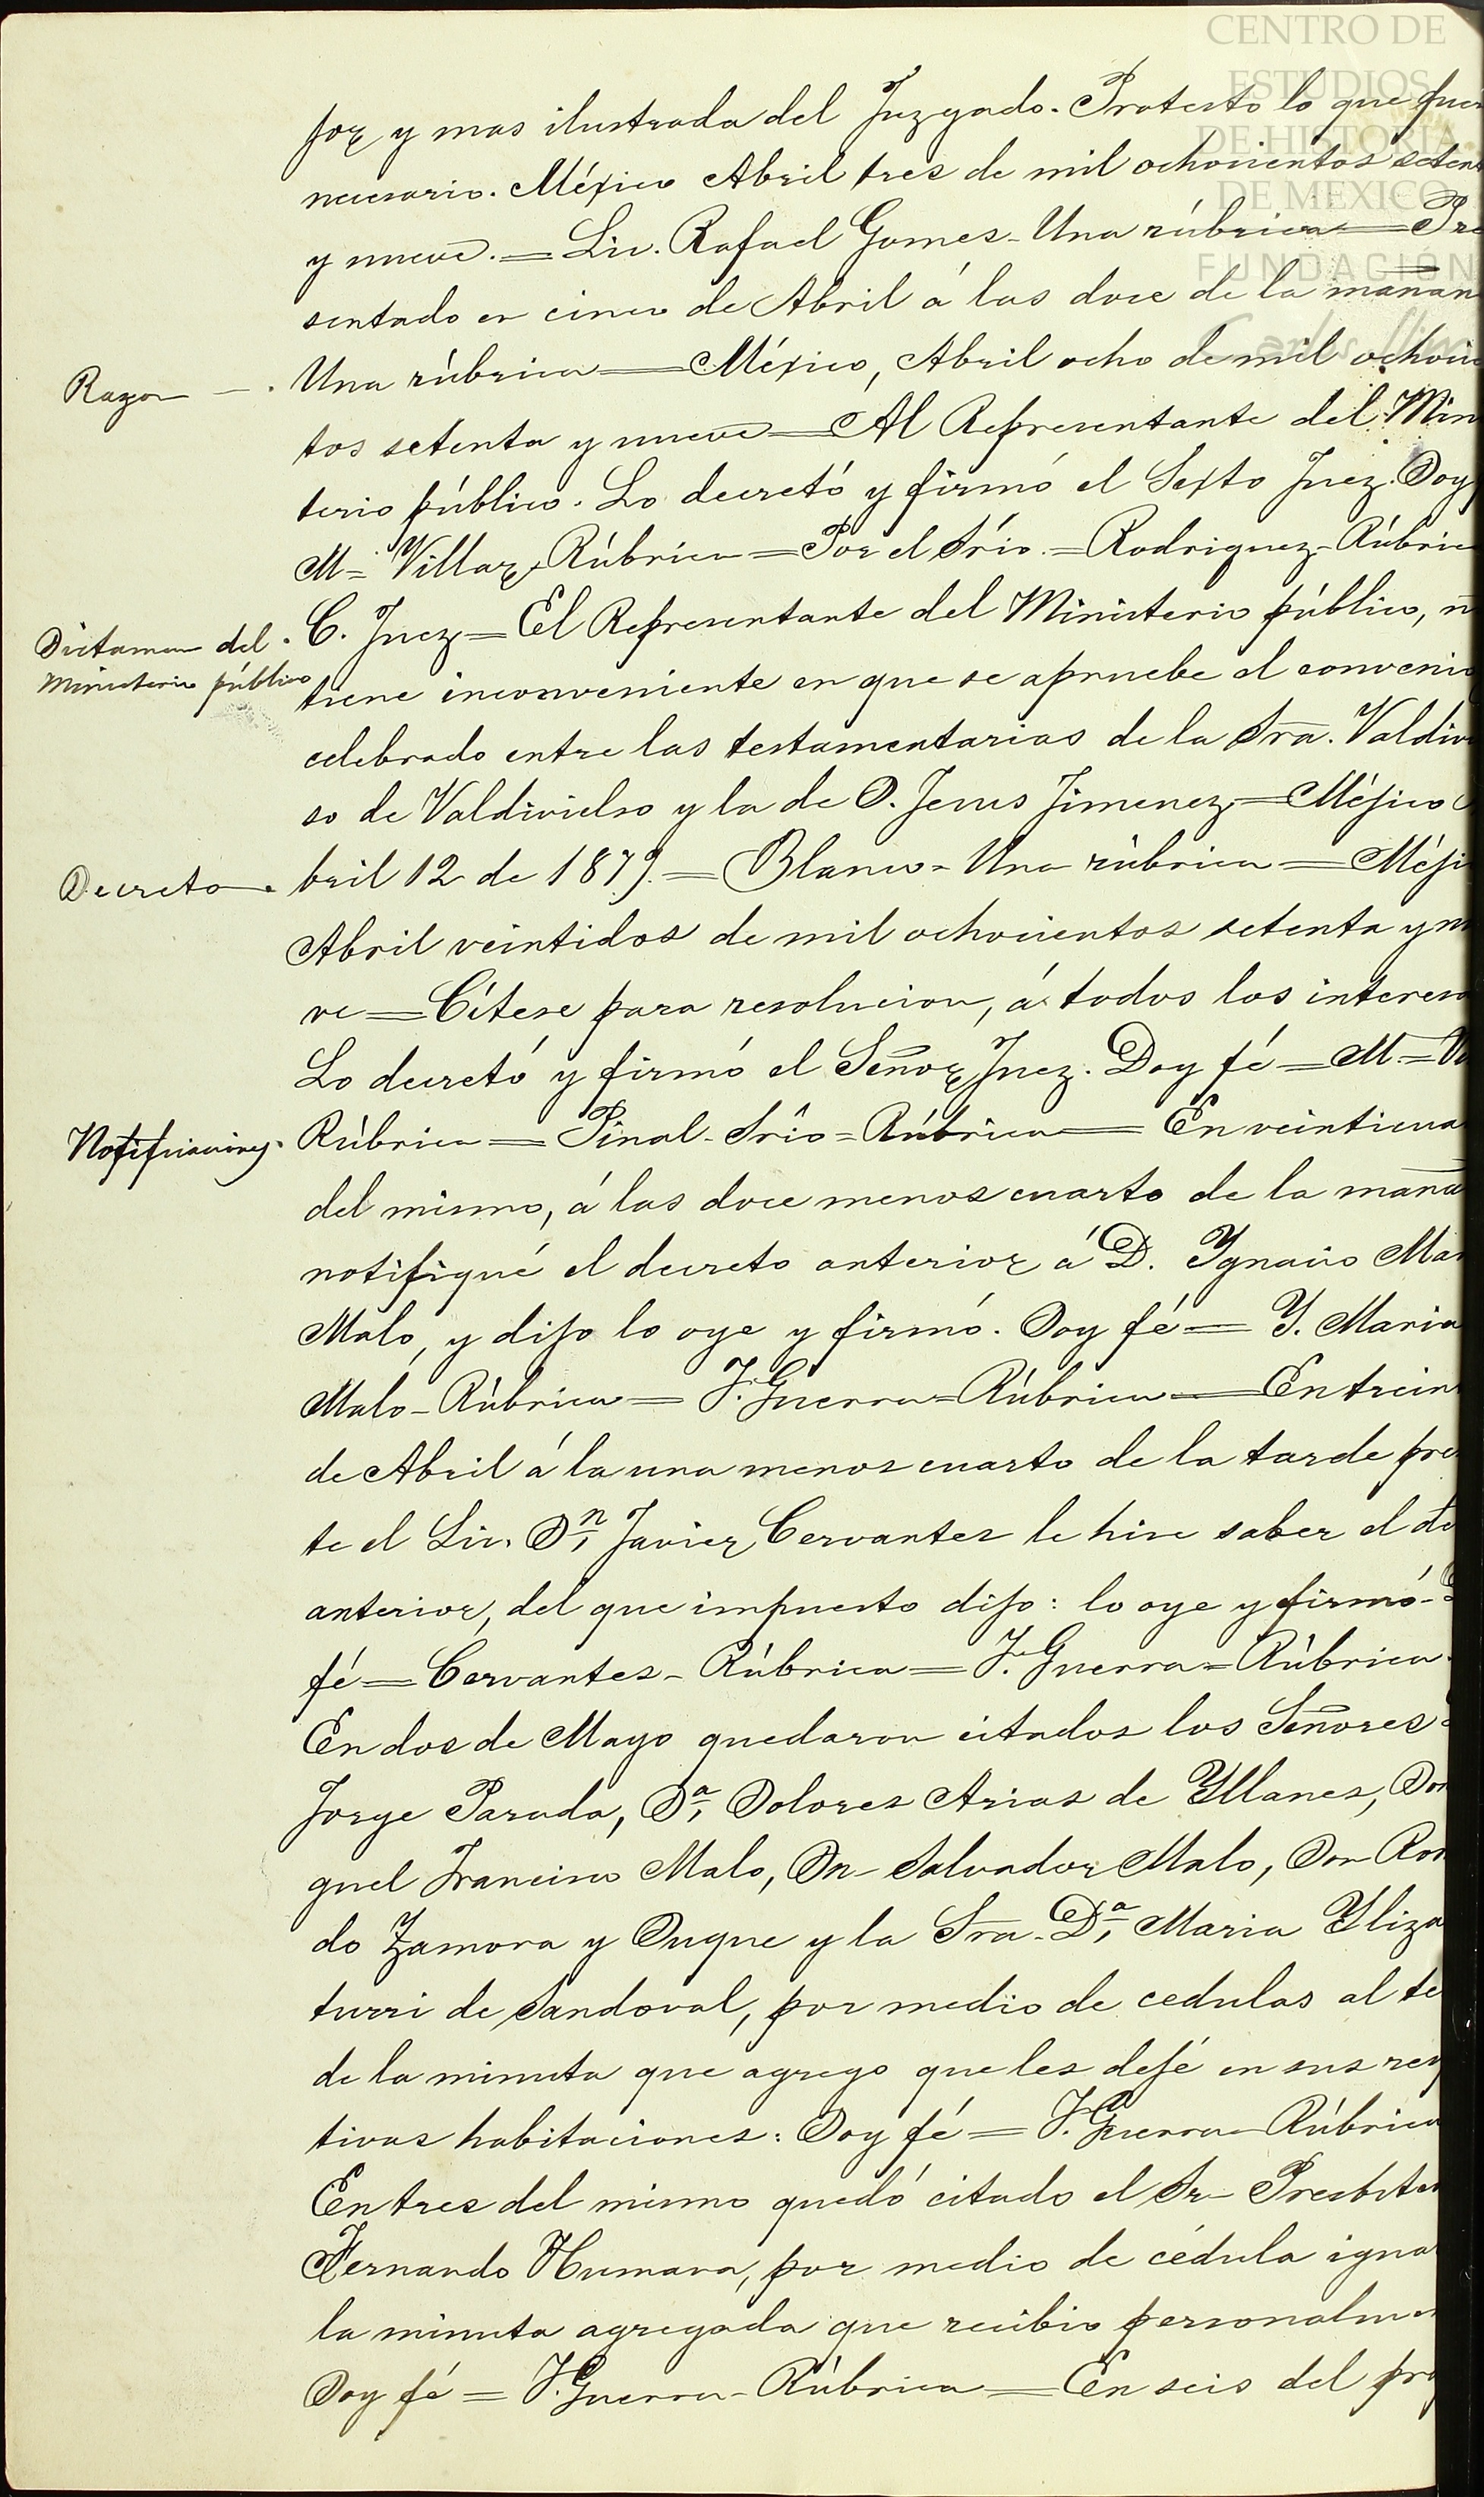 CENTRO DE
ESTUDIOS
DE HISTORIA
DE MEXICO
FUNDACIÓN
Carlos Slim
jor y mas ilustrada del Juzgado. Protesto lo que fuer
necesario. México Abril tres de mil ochocientos seten
y nueve. = Lic. Rafael Gomes - Una rúbrica = Pre
sentado en cinco de Abril á las doce de la mañan
Razon - . Una rúbrica = México, Abril ocho de mil ochocie
tos setenta y nueve = Al Representante del Min
terio público. Lo decretó y firmó el Septo Juez. Doy
M = Villar, Rúbrica = Por el Srio. = Rodriguez - Rúbric
Dictamen del . C. Juez = El Representante del Ministerio público, n
Ministerio público tiene inconveniente en que se apruebe el convenio
celebrado entre las testamentarias de la Sra. Valdivi
so de Valdivielso y la de D. Jesus Jimenez = Méjico
Decreto . bril 12 de 1879. = Blanco - Una rúbrica = Méji
Abril veintidos de mil ochocientos setenta y n
ve = Cítese para resolucion, á todos los interesa
Lo decretó y firmó el Señor Juez. Doy fé = M. = Vi
Notificaciones. Rúbrica = Pinal - Srio = Rúbrica = En veinticua
del mismo, á las doce menos cuarto de la maña
notifiqué el decreto anterior á D. Ygnacio Mar
Malo, y dijo lo oye y firmó. Doy fé = Y. Maria
Malo - Rúbrica = J. Guerra = Rúbrica = En trein
de Abril á la una menos cuarto de la tarde pre
te el Lic. Dn. Javier Cervantes le hice saber el de
anterior, del que impuesto dijo: lo oye y firmó -
fé = Cervantes - Rúbrica = J. Guerra = Rúbrica.
En dos de Mayo quedaron citados los Señores
Jorge Parada, Da. Dolores Arias de Yllanes, Don
guel Francisco Malo, Dn - Salvador Malo, Don Rom
do Zamora y Duque y la Sra. Da. Maria Yliza
turri de Sandoval, por medio de cedulas al te
de la minuta que agrego que les dejé en sus resp
tivas habitaciones: Doy fé = J. Guerra - Rúbrica
En tres del mismo quedó citado el Sr - Presbiter
Fernando Humana, por medio de cédula igual
la minuta agregada que recibio personalmen
Doy fé = J. Guerra - Rúbrica = En seis del prop